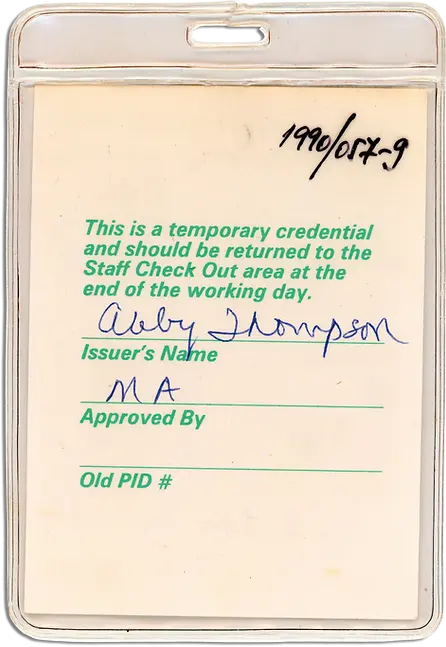 1990/057-9
This is a temporary credential
and should be returned to the
Staff Check Out area at the
end of the working day.
Abby Thompson
Issuer's Name
MA
Approved By
Old PID #